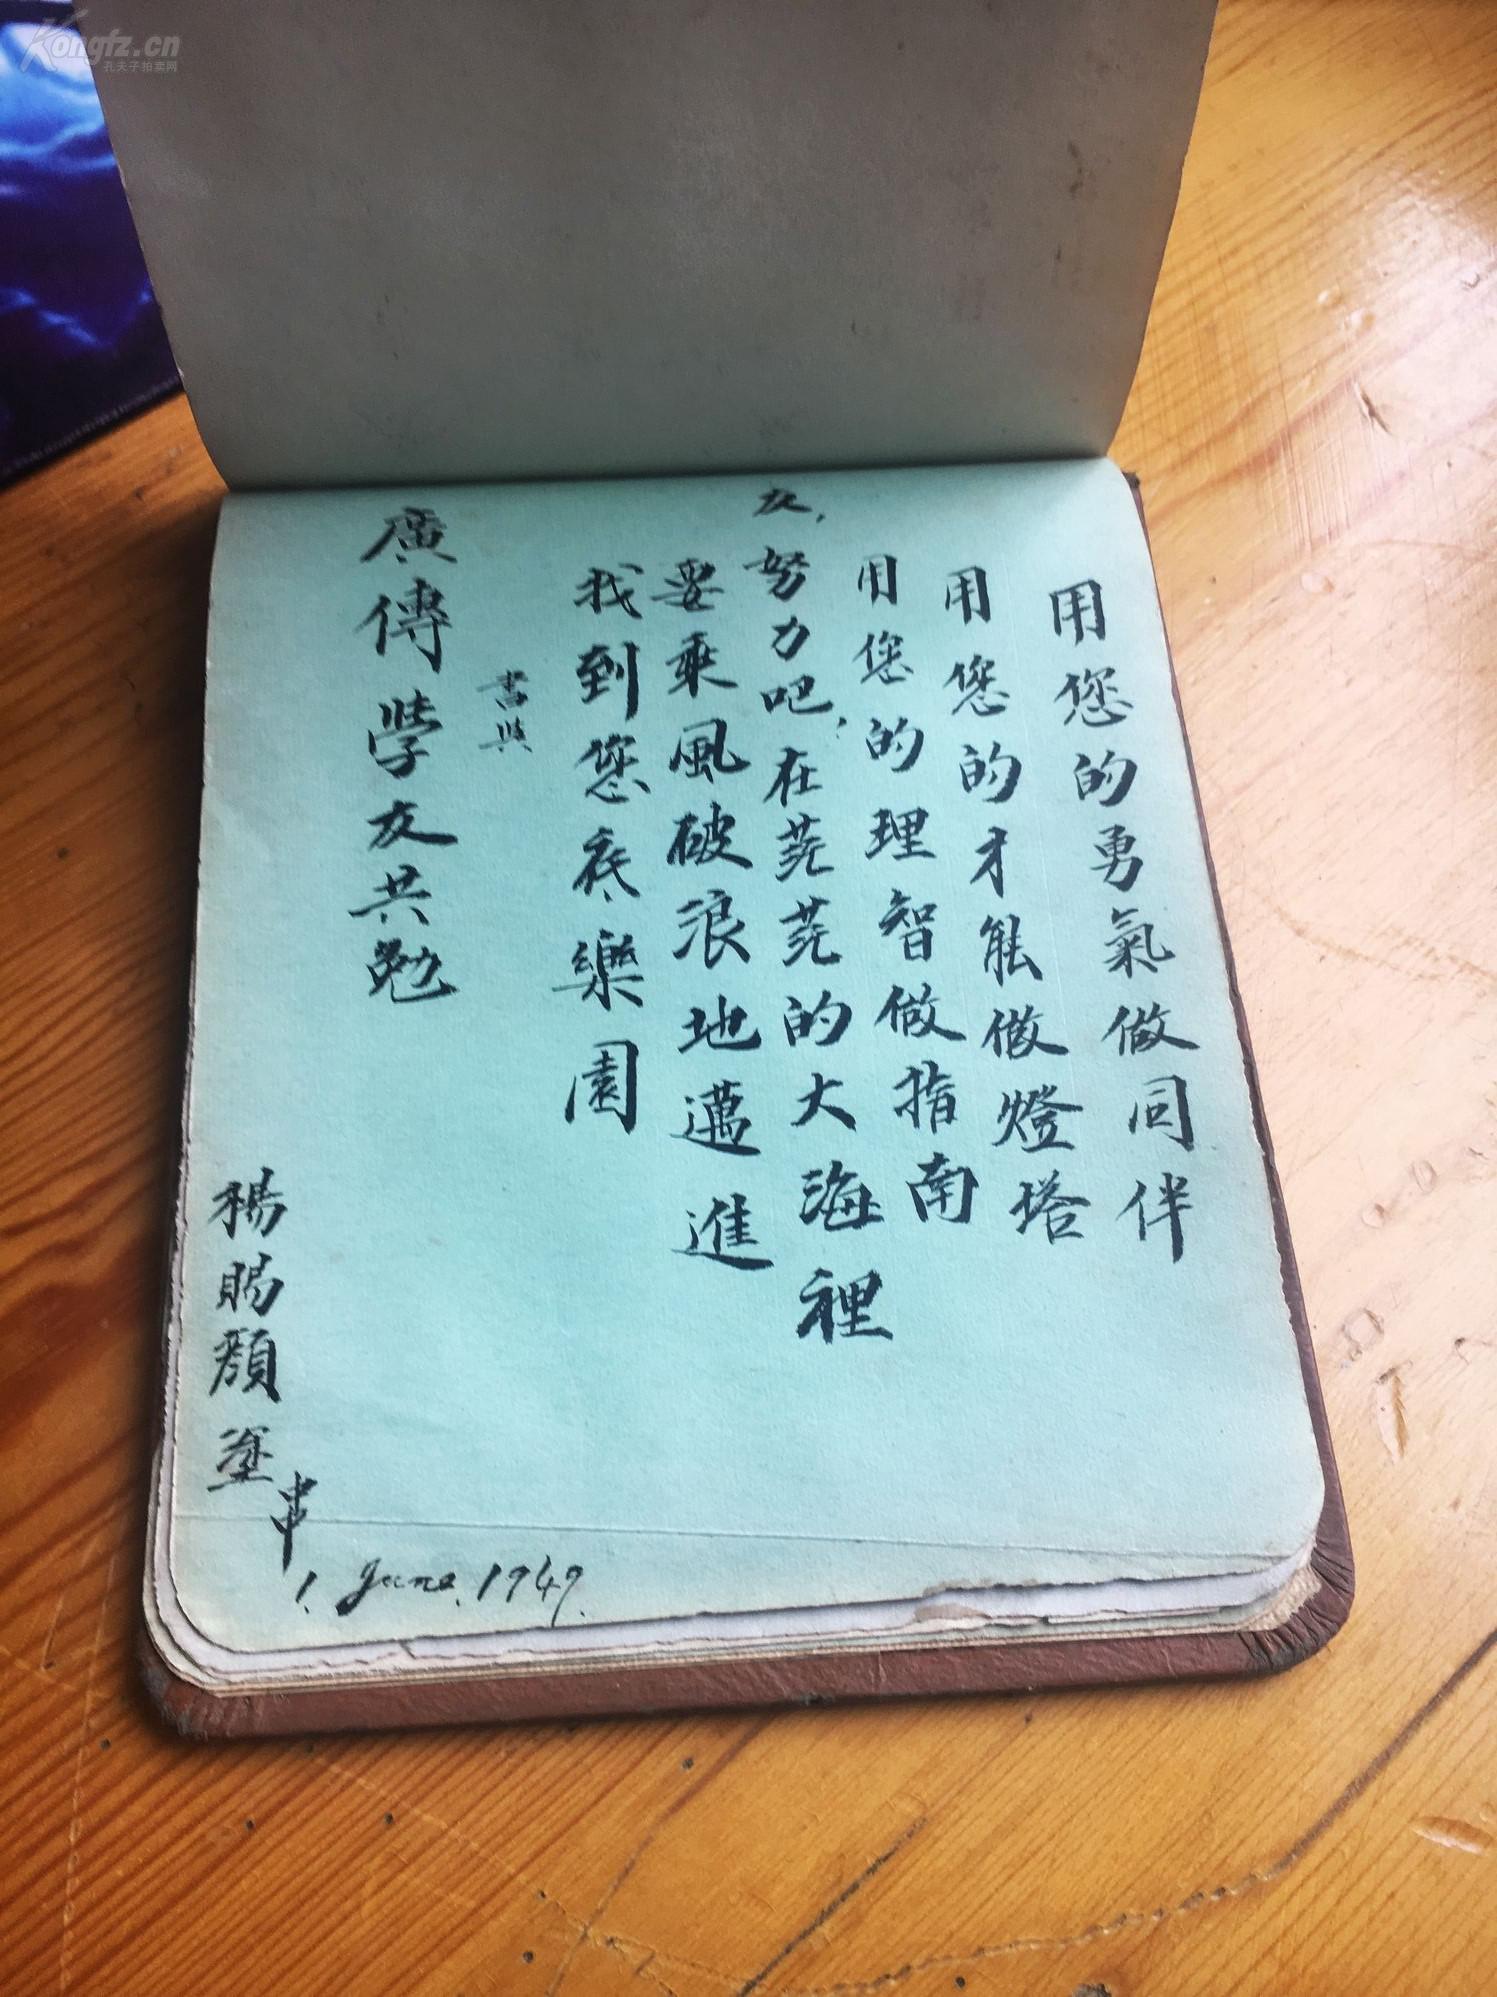 用您的勇氣做同伴
用您的才能做燈塔
用您的理智做指南
友,努力吧!在茫茫的大海裡
要乘風破浪地邁進
找到您底樂園
書與
廣傳學友共勉
楊賜顏塗
1. June. 1949.
Kongfz.cn
孔夫子拍卖网